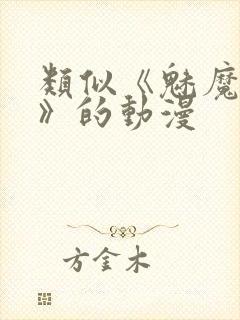 類似《魅魔
》的動漫
方金木